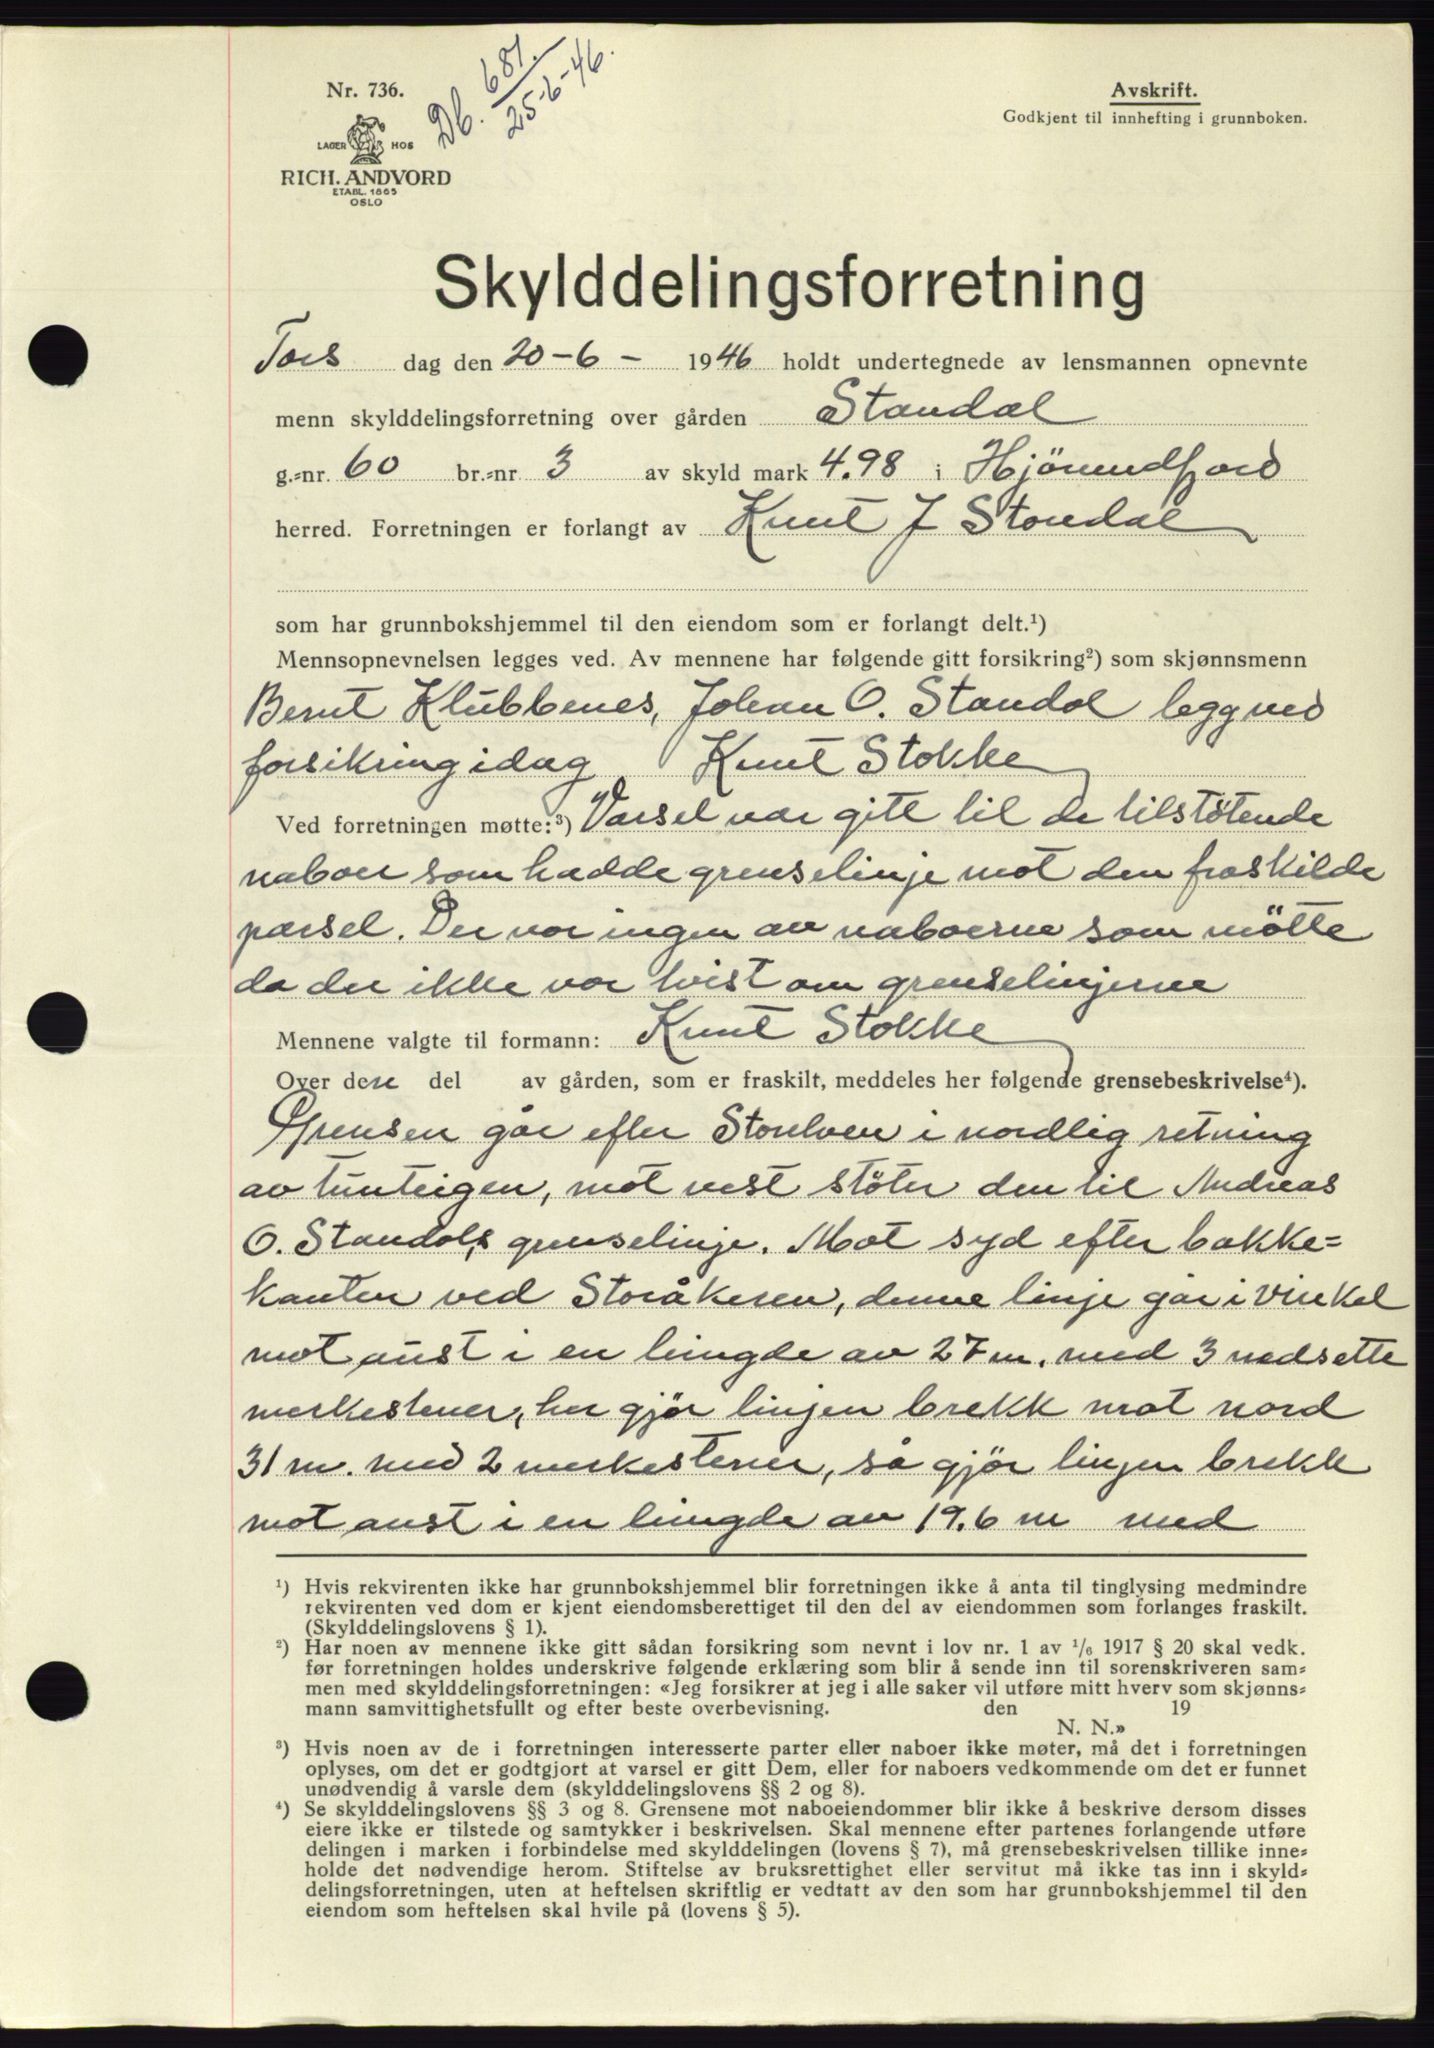 Nr. 736.
Db. 681.
25-6-46.
Avskrift.
Godkjent til innhefting i grunnboken.
LAGER HOS
RICH. ANDVORD
ETABL. 1865
OSLO
Skylddelingsforretning
Tors dag den 20-6- 1946 holdt undertegnede av lensmannen opnevnte
menn skylddelingsforretning over gården Standal
g.=nr. 60 br.=nr 3 av skyld mark 4.98 i Hjörundfjord
herred. Forretningen er forlangt av Knut J Standal
som har grunnbokshjemmel til den eiendom som er forlangt delt.¹)
Mennsopnevnelsen legges ved. Av mennene har følgende gitt forsikring²) som skjønnsmenn
Bernt Klubbenes, Johan O. Standal legg ved
forsikring idag Knut Stokke
Ved forretningen møtte:³) Varsel var gitt til de tilstötende
naboer som hadde grenselinje mot den fraskilde
parsel. Der var ingen av naboerne som mötte
da der ikke var tvist om grenselinjerne
Mennene valgte til formann: Knut Stokke
Over dene del av gården, som er fraskilt, meddeles her følgende grensebeskrivelse⁴).
Grensen går efter Storelven i nordlig retning
av tunteigen, mot vest stöter den til Andreas
O. Standals grenselinje. Mot syd efter bakke=
kanten ved Storåkeren, denne linje går i vinkel
mot aust i en lengde av 27 m. med 3 nedsette
merkestener, her gjör linjen brekk mot nord
31 m. med 2 merkestener, så gjör linjen brekk
mot aust i en lengde av 19.6 m med
¹) Hvis rekvirenten ikke har grunnbokshjemmel blir forretningen ikke å anta til tinglysing medmindre
rekvirenten ved dom er kjent eiendomsberettiget til den del av eiendommen som forlanges fraskilt.
(Skylddelingslovens § 1).
²) Har noen av mennene ikke gitt sådan forsikring som nevnt i lov nr. 1 av ¹/₆ 1917 § 20 skal vedk.
før forretningen holdes underskrive følgende erklæring som blir å sende inn til sorenskriveren sam=
men med skylddelingsforretningen: «Jeg forsikrer at jeg i alle saker vil utføre mitt hverv som skjønns=
mann samvittighetsfullt og efter beste overbevisning. den 19
N. N.»
³) Hvis noen av de i forretningen interesserte parter eller naboer ikke møter, må det i forretningen
oplyses, om det er godtgjort at varsel er gitt Dem, eller for naboers vedkommende om det er funnet
unødvendig å varsle dem (skylddelingslovens §§ 2 og 8).
⁴) Se skylddelingslovens §§ 3 og 8. Grensene mot naboeiendommer blir ikke å beskrive dersom disses
eiere ikke er tilstede og samtykker i beskrivelsen. Skal mennene efter partenes forlangende utføre
delingen i marken i forbindelse med skylddelingen (lovens § 7), må grensebeskrivelsen tillike inne=
holde det nødvendige herom. Stiftelse av bruksrettighet eller servitut må ikke tas inn i skyld=
delingsforretningen, uten at heftelsen skriftlig er vedtatt av den som har grunnbokshjemmel til den
eiendom som heftelsen skal hvile på (lovens § 5).